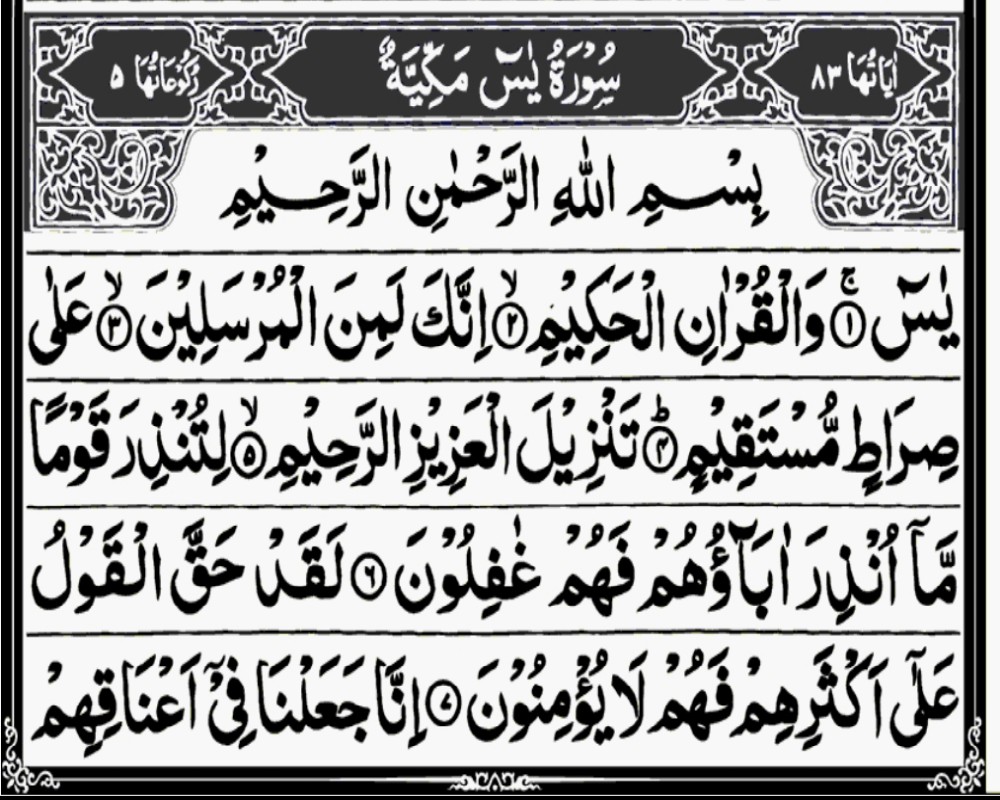 اٰیَاتُهَا ٨٣ سُوْرَةُ یٰسٓ مَكِّیَّةٌ رُكُوْعَاتُهَا ٥
بِسْمِ اللّٰهِ الرَّحْمٰنِ الرَّحِیْمِ
یٰسٓ ۚ﴿١﴾ وَالْقُرْاٰنِ الْحَكِیْمِ ۙ﴿٢﴾ اِنَّكَ لَمِنَ الْمُرْسَلِیْنَ ۙ﴿٣﴾ عَلٰی
صِرَاطٍ مُّسْتَقِیْمٍ ؕ﴿۴﴾ تَنْزِیْلَ الْعَزِیْزِ الرَّحِیْمِ ۙ﴿٥﴾ لِتُنْذِرَ قَوْمًا
مَّاۤ اُنْذِرَ اٰبَآؤُهُمْ فَهُمْ غٰفِلُوْنَ ﴿٦﴾ لَقَدْ حَقَّ الْقَوْلُ
عَلٰۤی اَكْثَرِهِمْ فَهُمْ لَا یُؤْمِنُوْنَ ﴿٧﴾ اِنَّا جَعَلْنَا فِیْۤ اَعْنَاقِهِمْ